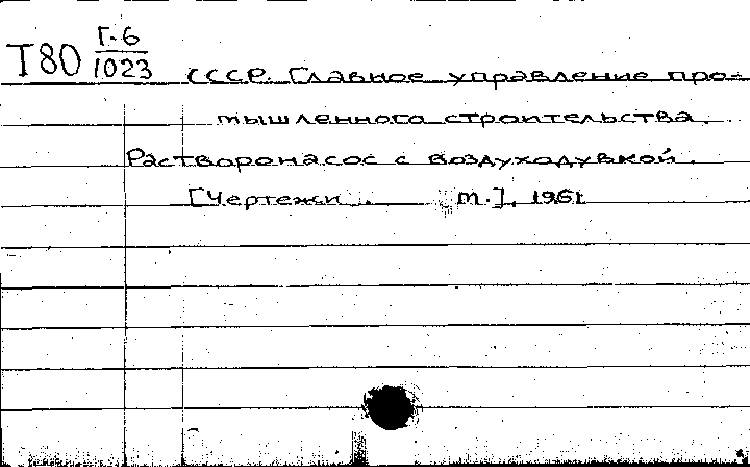 Т80 Г.6
1023
СССР. Главное управление про-
мышленного строительства.
Растворонасос с воздуходувкой.
[Чертежи. м.]. 1961